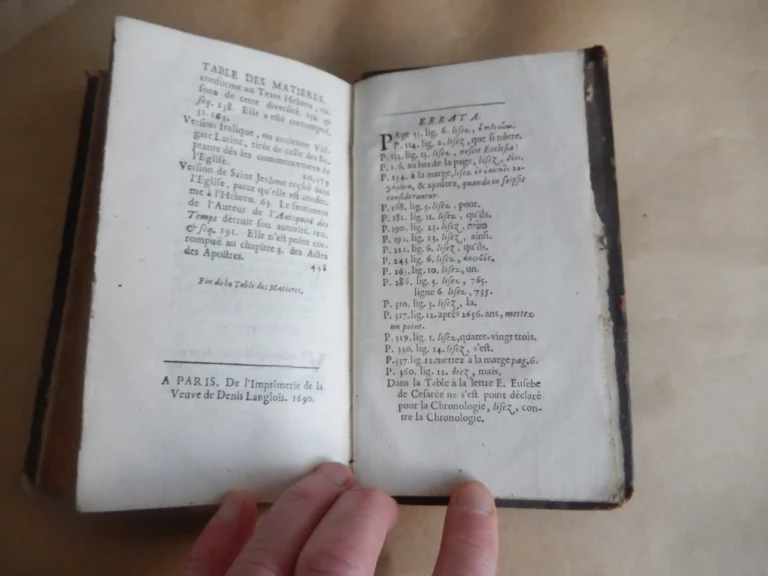 TABLE DES MATIERES.
conforme au Texte Hebreu, rai-
sons de cette diversité. 152. &
seq. 158. Elle a esté corrompuë.
31. 165.
Version Italique, ou ancienne Vul-
gate Latine, tirée de celle des Se-
ptante dés les commencemens de
l'Eglise. 20. 159
Version de Saint Jerôme reçuë dans
l'Eglise, parce qu'elle est confor-
me à l'Hebreu. 63. Le sentiment
de l'Auteur de l'Antiquité des
Temps détruit son autorité. 120.
& seq. 191. Elle n'est point cor-
rompuë au chapitre 5. des Actes
des Apostres. 438
Fin de la Table des Matieres.
A PARIS. De l'Imprimerie de la
Veuve de Denis Langlois. 1690.
ERRATA.
PAge 35. lig. 6. lisez,
P. 124. lig. 2. lisez, que si nôtre.
P. 151. lig. 15. lisez, nescit Ecclesia:
au bas de la page, lisez,
P. 154. à la marge, lisez
& ajoûtez, quando in seipsis
considerantur.
P. 168. lig. 5. lisez, pour.
P. 181. lig. 12. lisez, qu'ils.
P. 190. lig. 25. lisez,
P. 191. lig. 23. lisez, ainsi.
P. 221. lig. 6. lisez, qu'ils.
P. 243 lig. 6. lisez,
P. 261. lig. 10. lisez, un.
P. 286. lig. 5. lisez, 765.
ligne 6. lisez, 735.
P. 310. lig. 5. lisez, la.
P. 317. lig. 12. aprés 1656. ans, mettez
un point.
P. 319. lig. 1. lisez, quatre-vingt trois.
P. 350. lig. 14. lisez, s'est.
P. 357. lig. 12. mettez à la marge pag. 6.
P. 360. lig. 12. ôtez, mais.
Dans la Table à la lettre E. Eusebe
de Cesarée ne s'est point déclaré
pour la Chronologie, lisez, con-
tre la Chronologie.